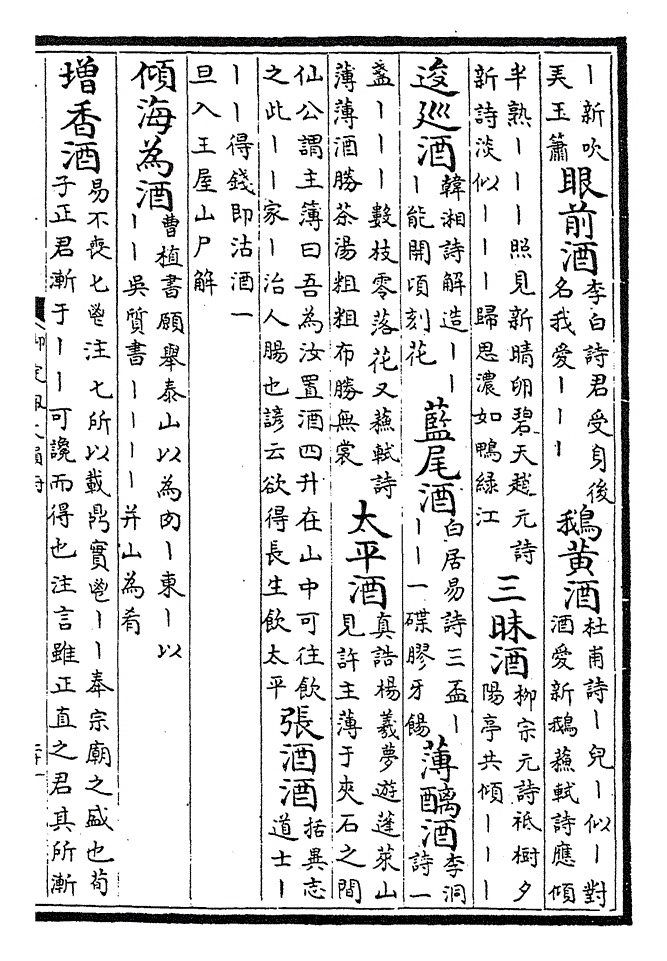 丨新吹
美玉簫
眼前酒
李白詩君愛身後
名我愛丨丨丨
鵝黃酒
杜甫詩丨兒丨似丨對
酒愛新鵝蘇軾詩應傾
半熟丨丨丨照見新晴卵碧天趙元詩
新詩淡似丨丨丨歸思濃如鴨綠江
三昧酒
柳宗元詩衹樹夕
陽亭共傾丨丨丨
逡巡酒
韓湘詩解造丨丨
丨能開頃刻花
藍尾酒
白居易詩三盃丨
丨丨一碟膠牙餳
薄醨酒
李洞
詩一
盞丨丨丨數枝零落花又蘇軾詩
薄薄酒勝茶湯粗粗布勝無裳
太平酒
真誥楊羲夢遊蓬萊山
見許主薄于夾石之間
仙公謂主簿曰吾為汝置酒四升在山中可往飲
之此丨丨家丨治人腸也諺云欲得長生飲太平
張酒酒
括異志
道士丨
丨丨得錢即沽酒一
旦入王屋山尸解
傾海為酒
曹植書願舉泰山以為肉丨東丨以
丨丨吳質書丨丨丨丨并山為肴
增香酒
易不喪匕鬯注匕所以載鼎實鬯丨丨奉宗廟之盛也荀
子正君漸于丨丨可讒而得也注言雖正直之君其所漸